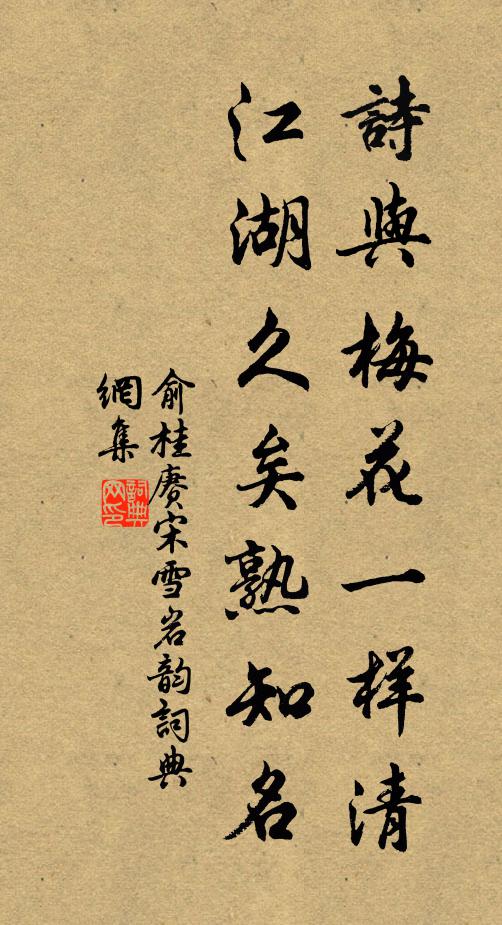 詩與梅花一样清
江湖久矣熟知名
俞桂赓宋雪岩韵詞典
網集
詞典
网印